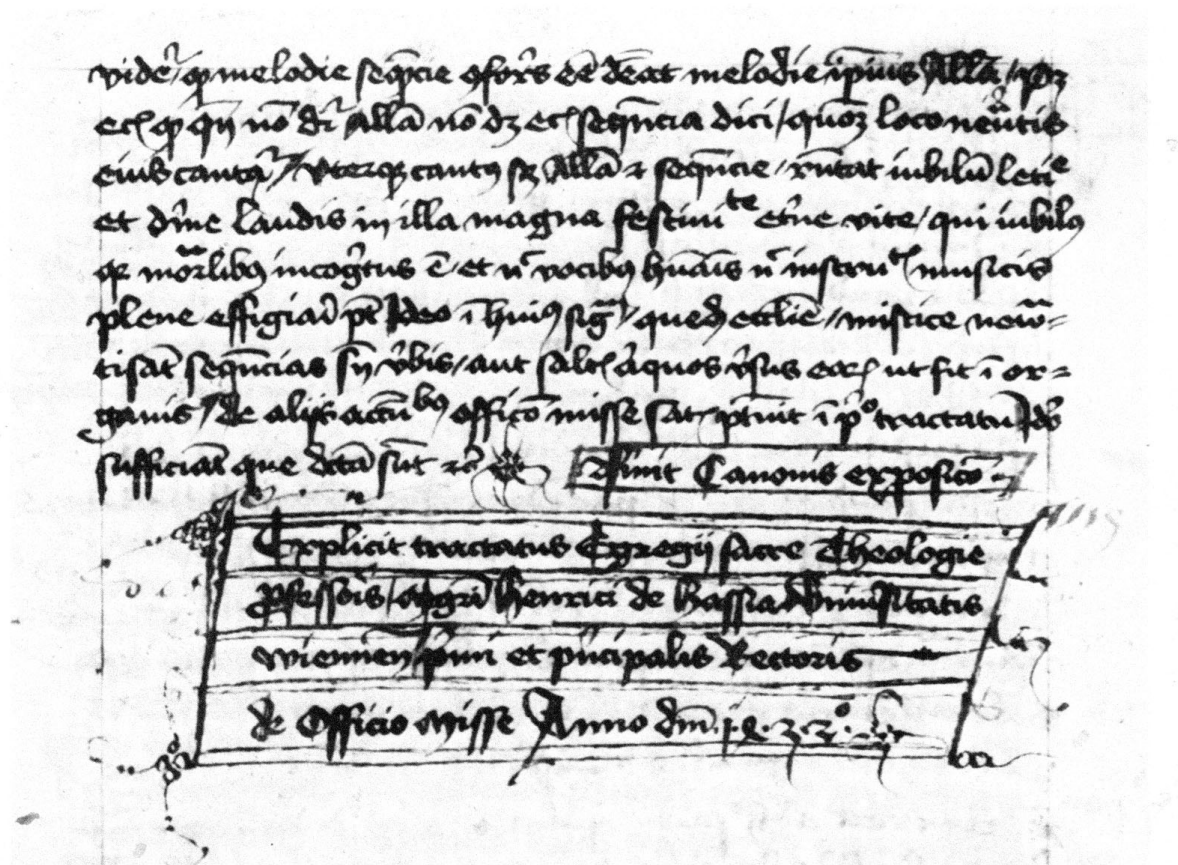 vider̃ / qᵈ melodie seqn̄cie ꝯform̃s eē debēt melodie ip̄ius Allā /
ecͥ qᵈ qn̄ nō dr̃ Allā nō dꝫ ecͥ sequēcia dici / loco
eius cantat̃ / vterqꝫ cantꝰ sꝫ Allā ⁊ sequēcie / iubilū leticͤ
et diuīe laudis in illa magna festiuiᵗᵉ et̃ne vite / qui iubilus
mor̃libꝰ incogⁱtus ē / et n̄ vocibꝰ hūaīs n̄ instruͥ musicis
plene effigiari pt̄ Ideo ī huiꝰ sig̃ / quedā ecclīe / mistice neuᵐᵃ=
tisāt sequēcias sn̄ v̄bis / aut saltͥ aͥquos v̄sus eoꝝ ut fit ī or=
ganis / de alijs actūbꝰ officō misse satͥ ptꝫ ī pͦ tractatu Idō
sufficiāt que dicta sūt ⁊c̄ Finit Canonis exposicō
Explicit tractatus Egregij sacre Theologie
ꝓfessoris / mgr̄i henrici de hassia Vniu̓sitatis
wiennen̄ p̄mi et pͥncipalis Rectoris
de Officio Misse Anno dm̄